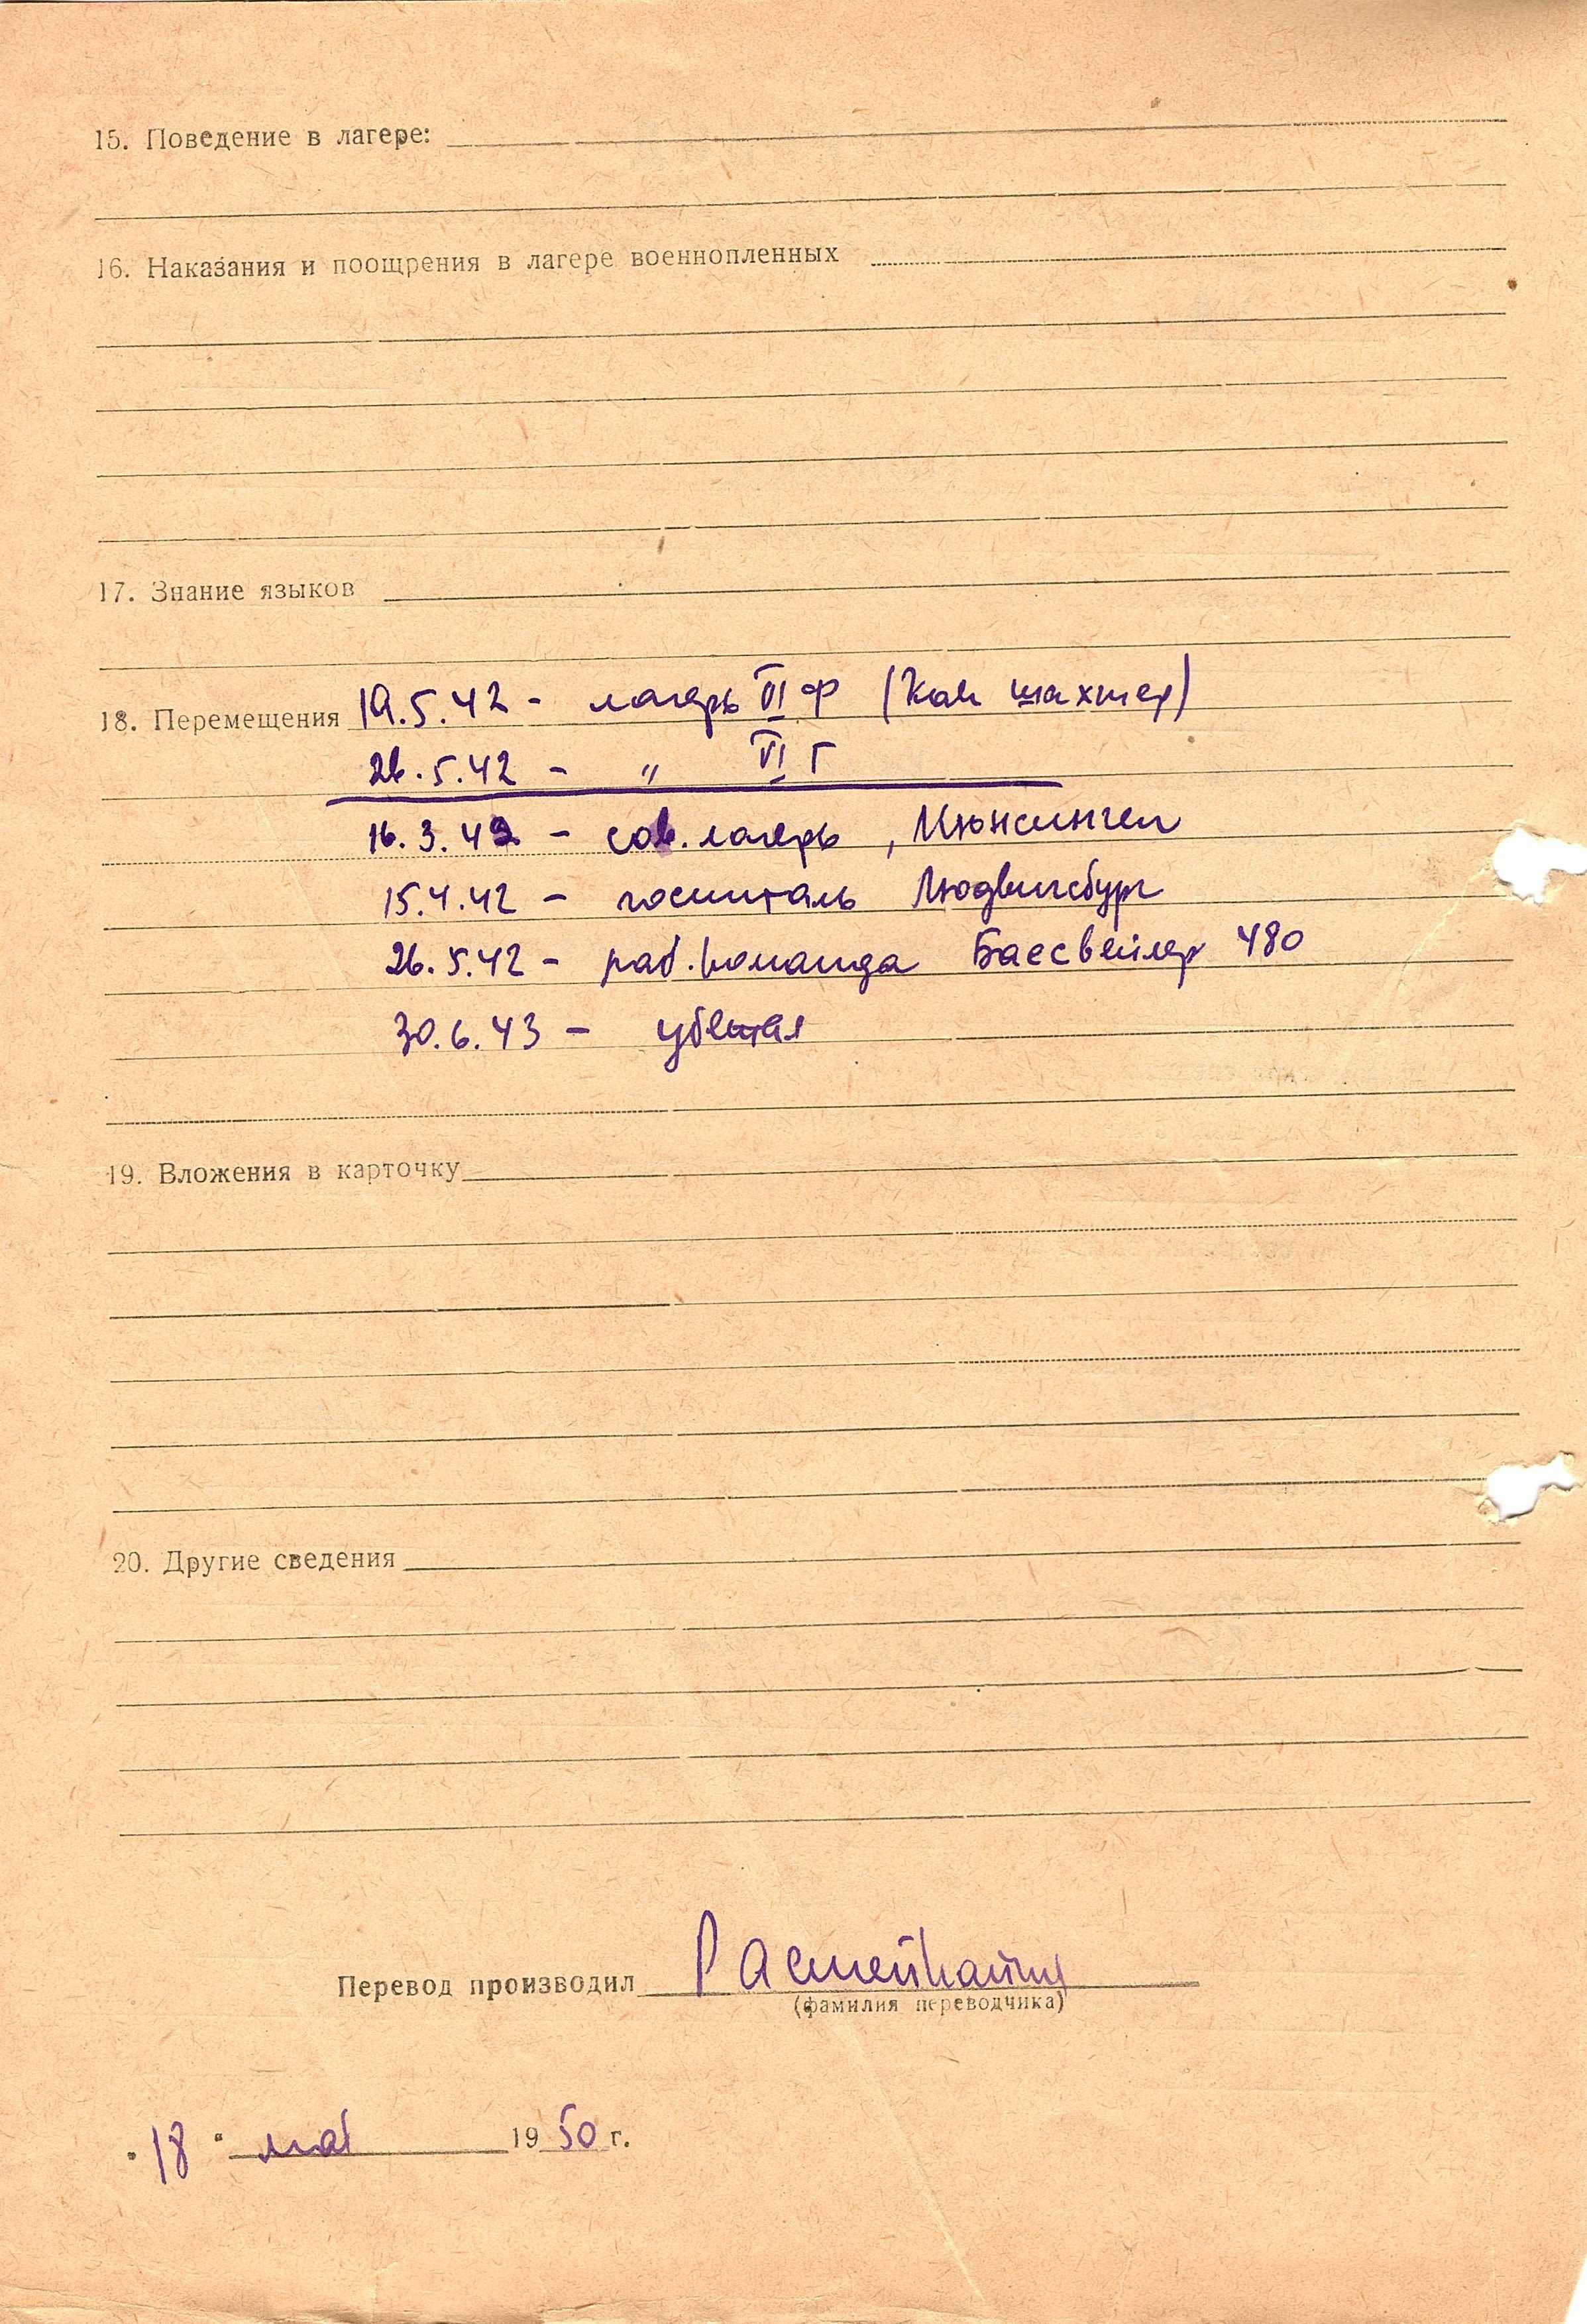 15. Поведение в лагере:
16. Наказания и поощрения в лагере военнопленных
17. Знание языков
18. Перемещения 19.5.42 - лагерь VI Ф (как шахтер)
26.5.42 - " VI Г
16.3.42 - сов. лагерь, Мюнсинген
15.4.42 - госпиталь Людвигсбург
26.5.42 - раб. команда Баесвейлер 480
30.6.43 - убежал
19. Вложения в карточку
20. Другие сведения
Перевод производил
(фамилия переводчика)
"18" мая 1950 г.